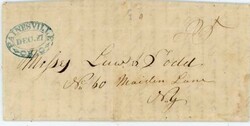 PAINESVILLE O.
DEC 17
Messrs Law & Todd
No 60 Maiden Lane
N.Y.